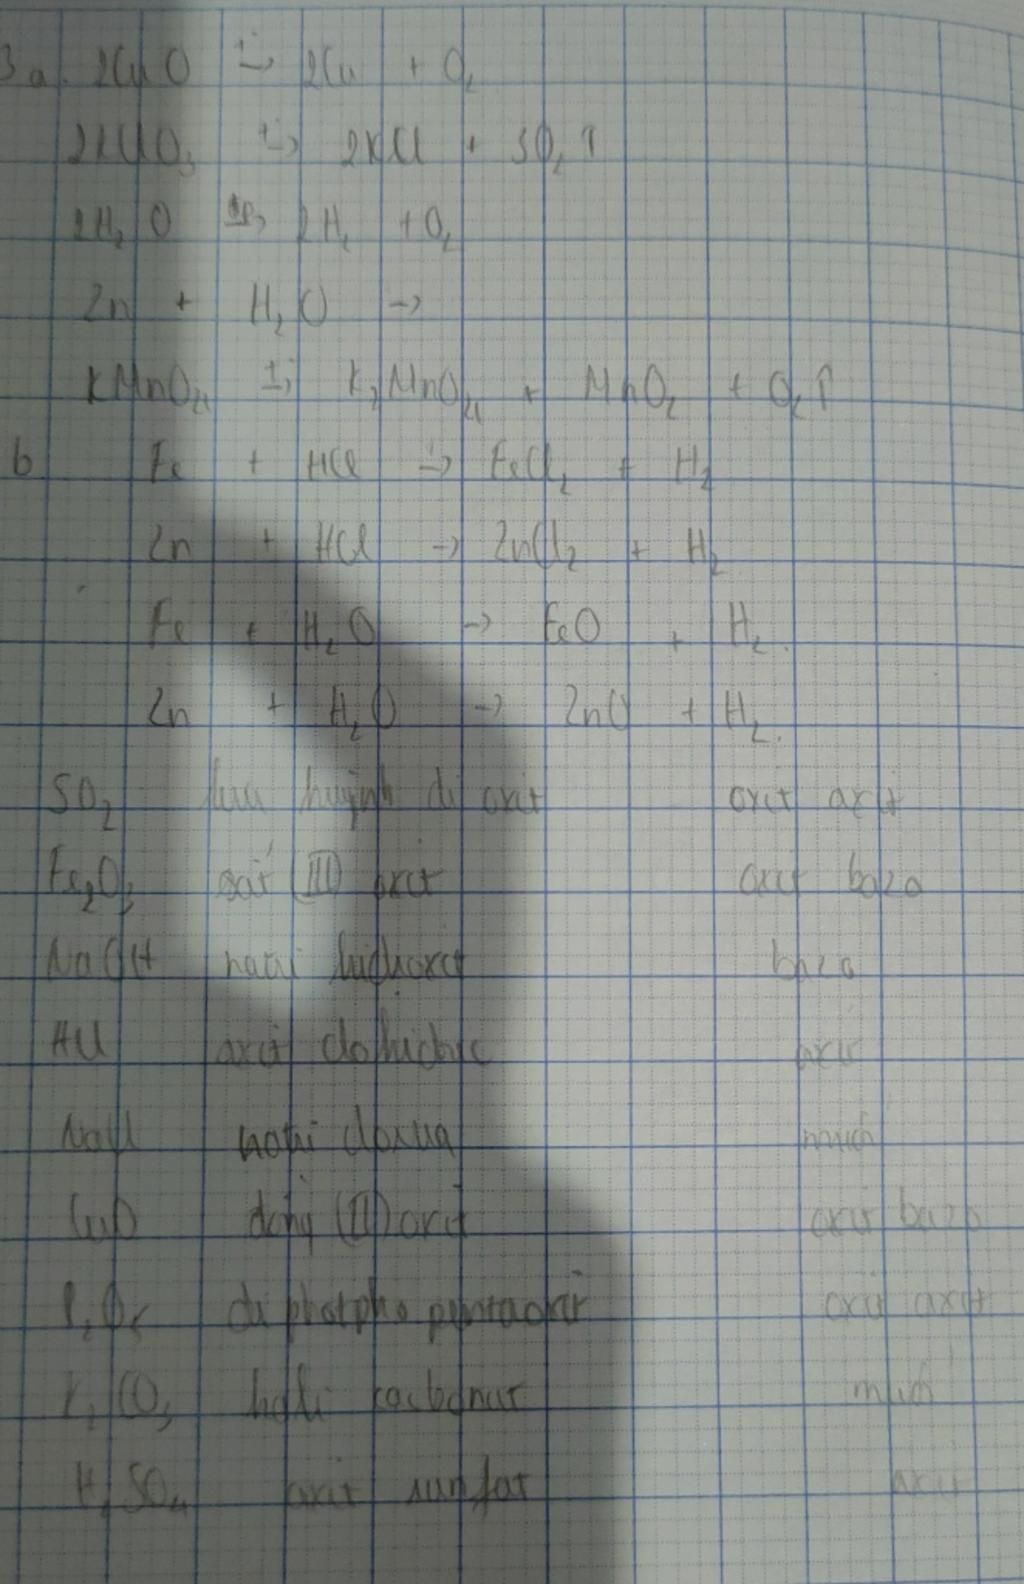 3a. 2CuO t°→ 2Cu + O₂
2KClO₃ t°→ 2KCl + 3O₂ ↑
2H₂O đp→ 2H₂ + O₂
Zn + H₂O →
KMnO₄ t°→ K₂MnO₄ + MnO₂ + O₂↑
b Fe + HCl → FeCl₂ + H₂
Zn + HCl → ZnCl₂ + H₂
Fe + H₂O → FeO + H₂.
Zn + H₂O → ZnO + H₂.
SO₂ lưu huỳnh đi oxit oxit axit
Fe₂O₃ sắt (III) oxit oxit bazo
NaOH natri hidhoxit bazo
HCl axit clohidric axit
NaCl natri cloxua muối
CuO đồng (II) oxit oxit bazo
P₂O₅ đi photpho pentaoxit oxit axit
K₂CO₃ kali cacbonat muối
H₂SO₄ axit sunfat axit